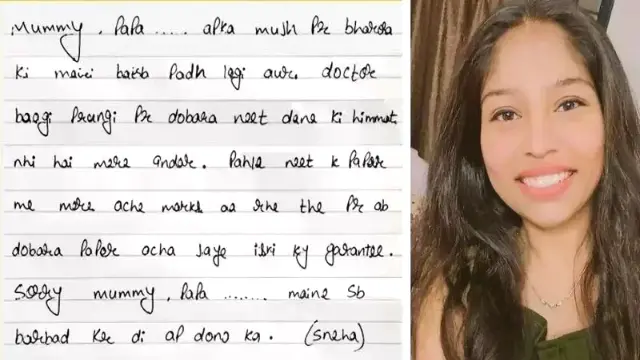 Mummy, Papa ..... apka mujh Pr bharosa
ki meri baisb Padh legi aur doctor
baegi Praungi Pr dobara neet dene ki himmat
nhi hai mere andar. Pahle neet k PaPer
me mere ache marks aa rhe the Pr ab
dobara PaPer acha jaye iski ky garantee.
Sorry mummy, Papa ........ maine Sb
barbad kr di ap dono ka. (Sneha)